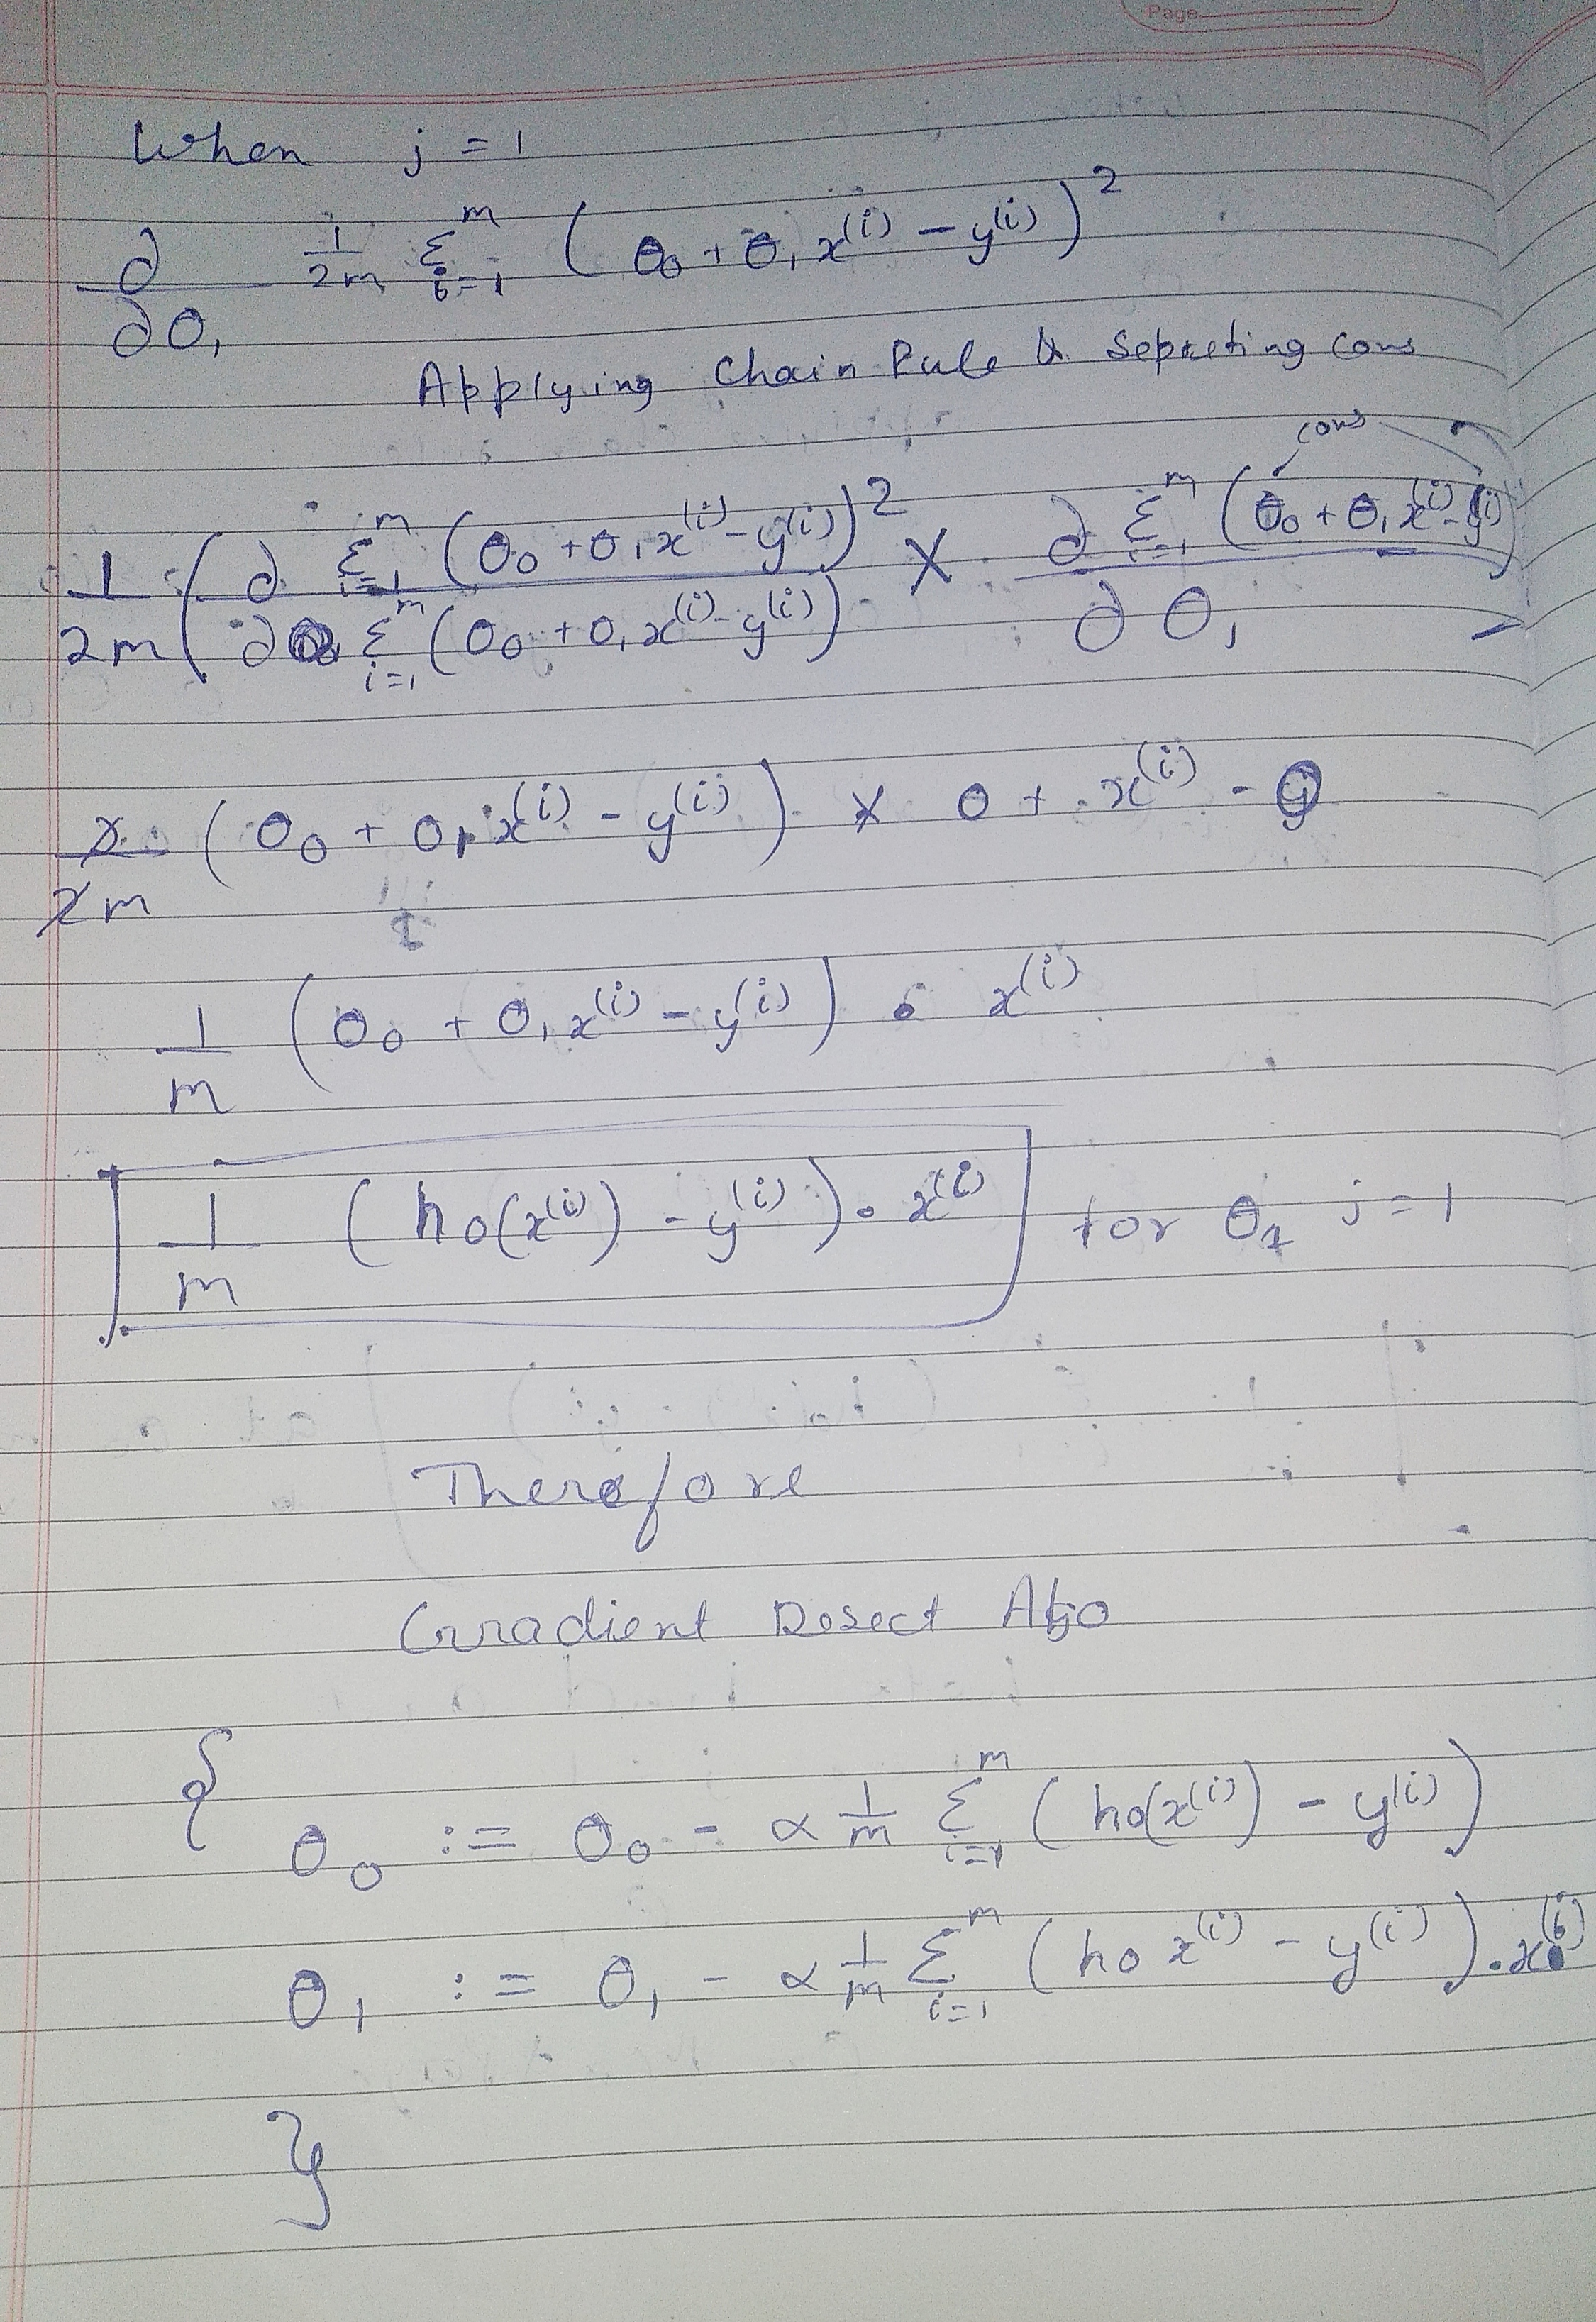 Page
When j = 1
∂/∂θ₁ 1/2m Σᵢ₌₁ᵐ (θ₀ + θ₁x⁽ⁱ⁾ − y⁽ⁱ⁾)²
Applying Chain Rule & Sepreting cons
cons
1/2m (∂ Σᵢ₌₁ᵐ (θ₀ + θ₁x⁽ⁱ⁾ − y⁽ⁱ⁾)² / ∂ Σᵢ₌₁ᵐ (θ₀ + θ₁x⁽ⁱ⁾ − y⁽ⁱ⁾) × ∂ Σᵢ₌₁ᵐ (θ₀ + θ₁x⁽ⁱ⁾ − y⁽ⁱ⁾) / ∂θ₁
2/2m (θ₀ + θ₁x⁽ⁱ⁾ − y⁽ⁱ⁾) × 0 + x⁽ⁱ⁾ − 0
1/m (θ₀ + θ₁x⁽ⁱ⁾ − y⁽ⁱ⁾) • x⁽ⁱ⁾
1/m (hθ(x⁽ⁱ⁾) − y⁽ⁱ⁾) • x⁽ⁱ⁾ for θ₁ j = 1
Therefore
Gradient Desect Algo
{
θ₀ := θ₀ − α 1/m Σᵢ₌₁ᵐ (hθ(x⁽ⁱ⁾) − y⁽ⁱ⁾)
θ₁ := θ₁ − α 1/m Σᵢ₌₁ᵐ (hθ x⁽ⁱ⁾ − y⁽ⁱ⁾) • x⁽ⁱ⁾
}